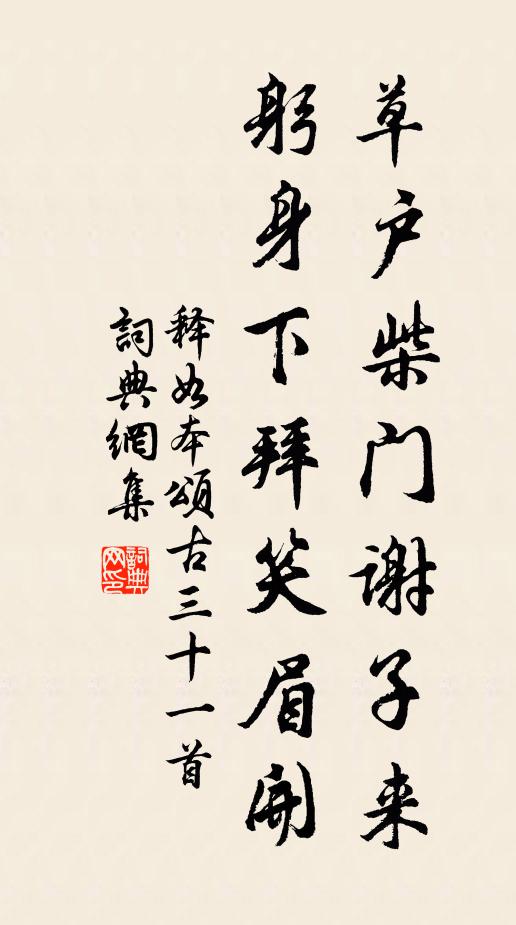 草户柴门谢子来
躬身下拜笑眉開
释如本頌古三十一首
詞典網集
詞典网印